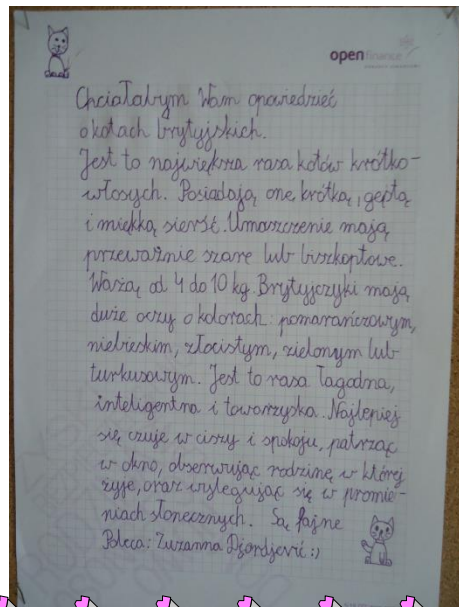 open finance
Chciałabym Wam opowiedzieć
o kotach brytyjskich.
Jest to największa rasa kotów krótko-
włosych. Posiadają one krótką, gęstą
i miękką sierść. Umaszczenie mają
przeważnie szare lub biszkoptowe.
Ważą od 4 do 10 kg. Brytyjczyki mają
duże oczy o kolorach: pomarańczowym,
niebieskim, złocistym, zielonym lub
turkusowym. Jest to rasa łagodna,
inteligentna i towarzyska. Najlepiej
się czuje w ciszy i spokoju, patrząc
w okno, obserwując rodzinę w której
żyje, oraz wylegując się w promie-
niach słonecznych. Są fajne
Poleca: Zuzanna Djordjević :)